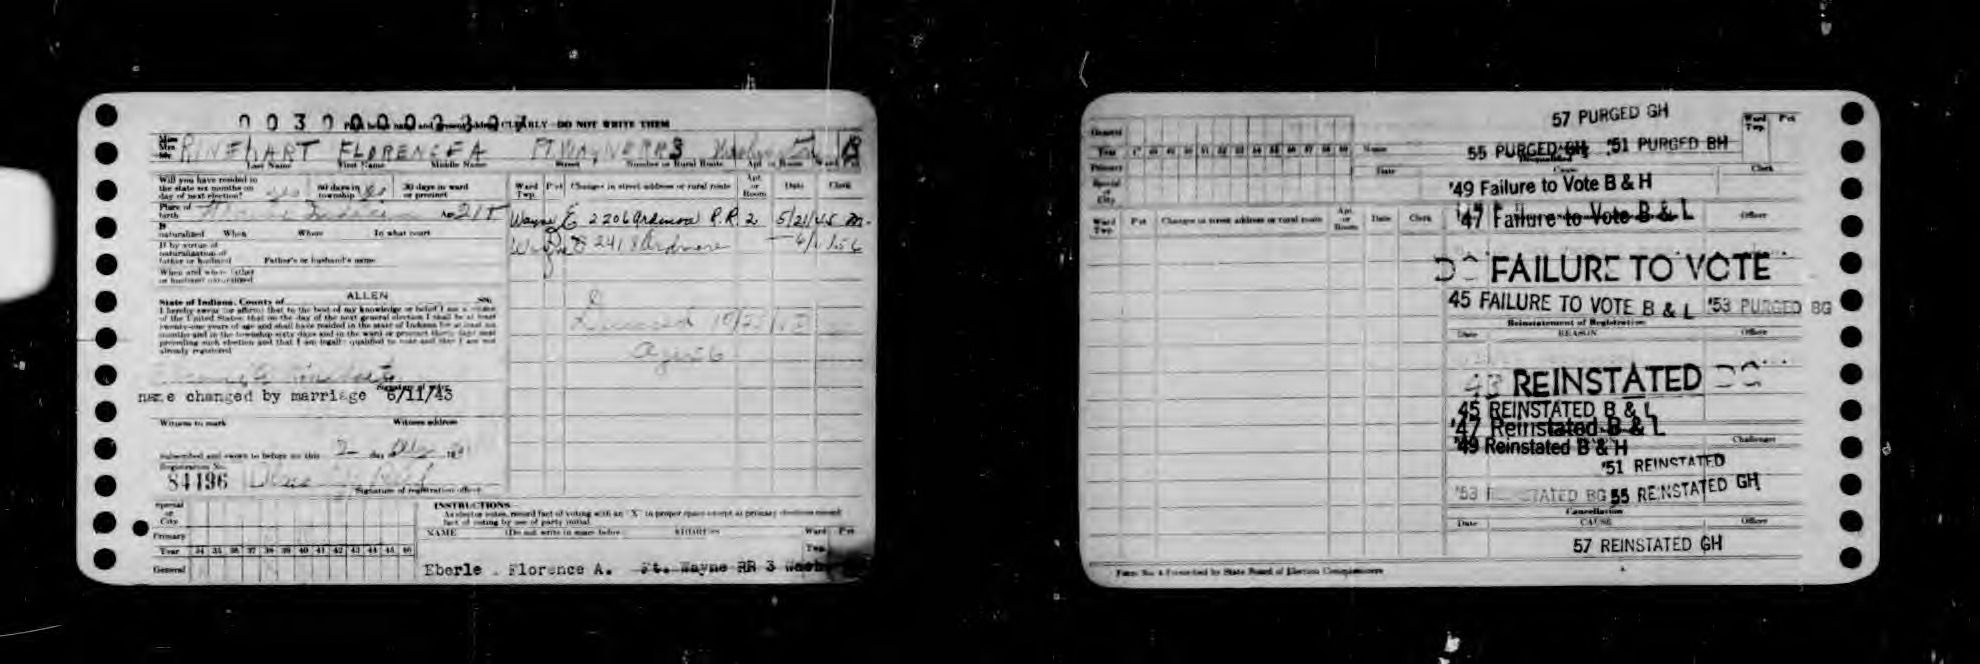 CLEARLY—DO NOT WRITE THEM
RINEHART FLORENCE A FT WAYNE RR 3
Last Name First Name Middle Name Street Number or Rural Route Apt or Room Ward Pct
Will you have resided in
the state six months on
day of next election? yes 60 days in township yes 30 days in ward or precinct
Place of birth Age 21+
If naturalized When Where In what court
If by virtue of
naturalization of
father or husband Father's or husband's name
When and where father
or husband naturalized
Ward Twp. Pct Changes in street address or rural route Apt. or Room Date Clerk
Wayne E 2206 Ardmore R.R. 2 5/21/45 M.
Wayne E 2418 Ardmore 56
Deceased
Age 56
State of Indiana, County of ALLEN
I hereby swear (or affirm) that to the best of my knowledge or belief I am a citizen
of the United States; that on the day of the next general election I shall be at least
twenty-one years of age and shall have resided in the state of Indiana for at least six
months and in the township sixty days and in the ward or precinct thirty days next
preceding such election and that I am legally qualified to vote and that I am not
already registered
name changed by marriage 6/11/43
Witness to mark Witness address
Subscribed and sworn to before me this 2 day
Registration No.
84196
Signature of registration officer
Special or City
Primary
Year 34 35 36 37 38 39 40 41 42 43 44 45 46
General
INSTRUCTIONS
As elector votes, record fact of voting with an "X" in proper space except at primary elections record
fact of voting by use of party initial.
NAME (Do not write in space below) ADDRESS Ward Twp. Pct
Eberle . Florence A. Ft. Wayne RR 3 Wash
General
Year
Primary
Special or City
Name
Date Cause Clerk
Ward Twp. Pct
57 PURGED GH
55 PURGED GH '51 PURGED BH
'49 Failure to Vote B & H
'47 Failure to Vote B & L
Officer
Ward Twp. Pct Changes in street address or rural route Apt. or Room Date Clerk
FAILURE TO VOTE
45 FAILURE TO VOTE B & L '53 PURGED BG
Reinstatement of Registration
Date REASON Officer
43 REINSTATED
45 REINSTATED B & L
'47 Reinstated B & L
'49 Reinstated B & H
Challenger
'51 REINSTATED
'53 REINSTATED BG 55 REINSTATED GH
Cancellation
Date CAUSE Officer
57 REINSTATED GH
Form No. 4 Prescribed by State Board of Election Commissioners